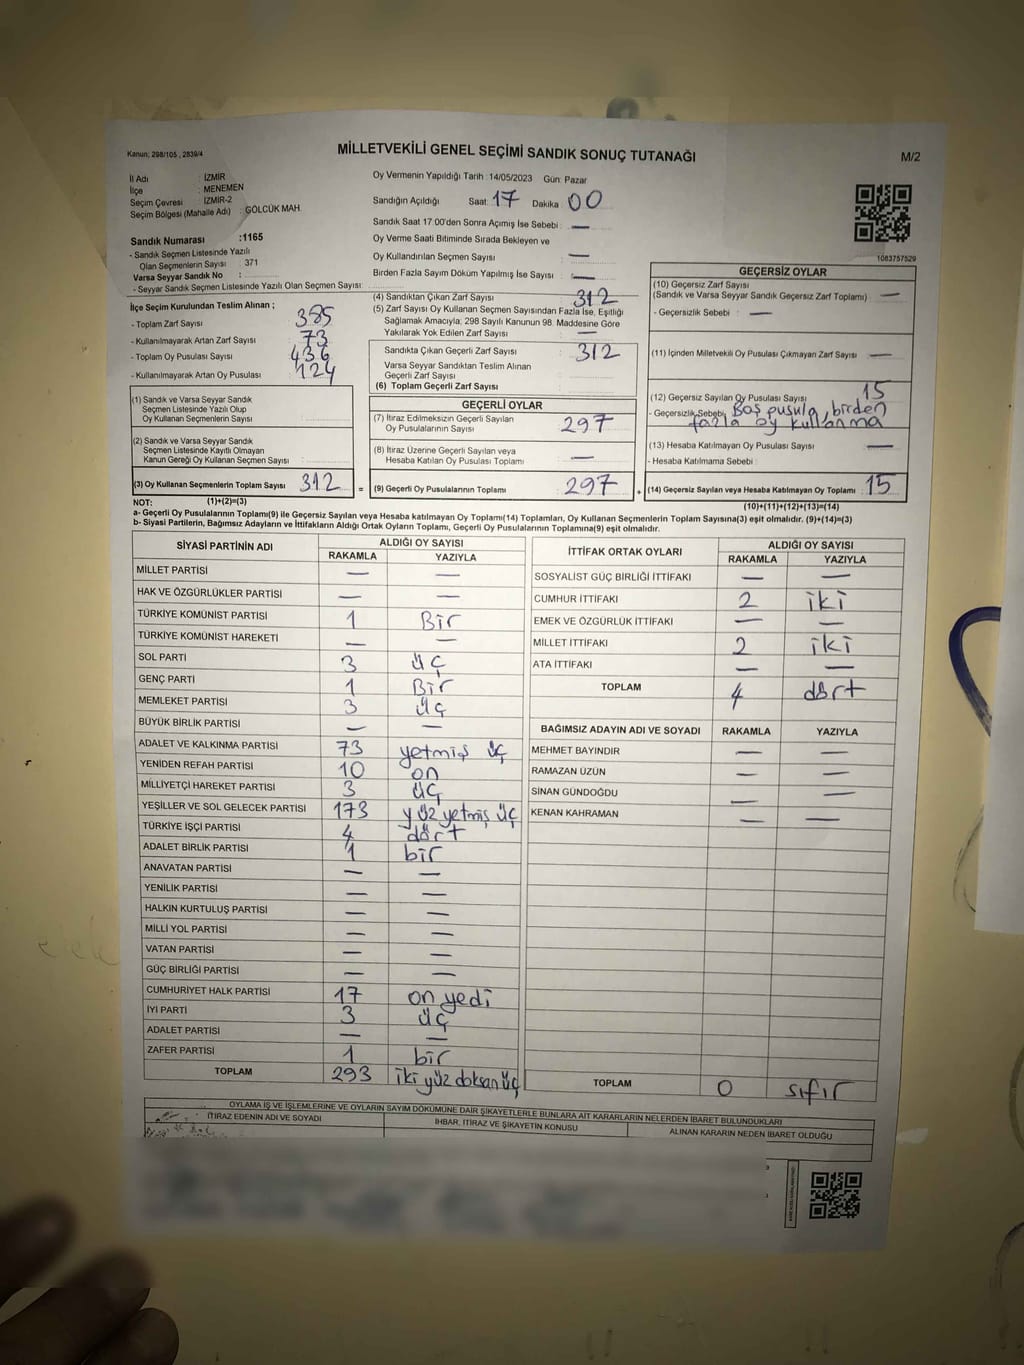 Kanun; 298/105 , 2839/4
MİLLETVEKİLİ GENEL SEÇİMİ SANDIK SONUÇ TUTANAĞI
M/2
İl Adı : İZMİR
İlçe : MENEMEN
Seçim Çevresi : İZMİR-2
Seçim Bölgesi (Mahalle Adı) : GÖLCÜK MAH.
Sandık Numarası :1165
- Sandık Seçmen Listesinde Yazılı
Olan Seçmenlerin Sayısı : 371
Varsa Seyyar Sandık No :
- Seyyar Sandık Seçmen Listesinde Yazılı Olan Seçmen Sayısı:
Oy Vermenin Yapıldığı Tarih :14/05/2023 Gün: Pazar
Sandığın Açıldığı Saat: 17 Dakika 00
Sandık Saat 17.00'den Sonra Açımış İse Sebebi : —
Oy Verme Saati Bitiminde Sırada Bekleyen ve
Oy Kullandırılan Seçmen Sayısı —
Birden Fazla Sayım Döküm Yapılmış İse Sayısı : —
1083757529
İlçe Seçim Kurulundan Teslim Alınan ;
- Toplam Zarf Sayısı 385
- Kullanılmayarak Artan Zarf Sayısı : 73
- Toplam Oy Pusulası Sayısı 436
- Kullanılmayarak Artan Oy Pusulası : 124
(1) Sandık ve Varsa Seyyar Sandık
Seçmen Listesinde Yazılı Olup
Oy Kullanan Seçmenlerin Sayısı :
(2) Sandık ve Varsa Seyyar Sandık
Seçmen Listesinde Kayıtlı Olmayan
Kanun Gereği Oy Kullanan Seçmen Sayısı :
(3) Oy Kullanan Seçmenlerin Toplam Sayısı 312 =
(4) Sandıktan Çıkan Zarf Sayısı 312
(5) Zarf Sayısı Oy Kullanan Seçmen Sayısından Fazla İse, Eşitliği
Sağlamak Amacıyla; 298 Sayılı Kanunun 98. Maddesine Göre
Yakılarak Yok Edilen Zarf Sayısı : —
Sandıkta Çıkan Geçerli Zarf Sayısı 312
Varsa Seyyar Sandıktan Teslim Alınan
Geçerli Zarf Sayısı :
(6) Toplam Geçerli Zarf Sayısı
GEÇERLİ OYLAR
(7) İtiraz Edilmeksizin Geçerli Sayılan
Oy Pusulalarının Sayısı : 297
(8) İtiraz Üzerine Geçerli Sayılan veya
Hesaba Katılan Oy Pusulası Toplamı : —
(9) Geçerli Oy Pusulalarının Toplamı : 297 +
GEÇERSİZ OYLAR
(10) Geçersiz Zarf Sayısı
(Sandık ve Varsa Seyyar Sandık Geçersiz Zarf Toplamı) : —
- Geçersizlik Sebebi : —
(11) İçinden Milletvekili Oy Pusulası Çıkmayan Zarf Sayısı : —
(12) Geçersiz Sayılan Oy Pusulası Sayısı 15
- Geçersizlik Sebebi Boş pusula, birden
fazla oy kullanma
(13) Hesaba Katılmayan Oy Pusulası Sayısı : —
- Hesaba Katılmama Sebebi
(14) Geçersiz Sayılan veya Hesaba Katılmayan Oy Toplamı : 15
NOT: (1)+(2)=(3)
(10)+(11)+(12)+(13)=(14)
a- Geçerli Oy Pusulalarının Toplamı(9) ile Geçersiz Sayılan veya Hesaba katılmayan Oy Toplamı(14) Toplamları, Oy Kullanan Seçmenlerin Toplam Sayısına(3) eşit olmalıdır. (9)+(14)=(3)
b- Siyasi Partilerin, Bağımsız Adayların ve İttifakların Aldığı Ortak Oyların Toplamı, Geçerli Oy Pusulalarının Toplamına(9) eşit olmalıdır.
SİYASİ PARTİNİN ADI ALDIĞI OY SAYISI
RAKAMLA YAZIYLA
MİLLET PARTİSİ — —
HAK VE ÖZGÜRLÜKLER PARTİSİ — —
TÜRKİYE KOMÜNİST PARTİSİ 1 Bir
TÜRKİYE KOMÜNİST HAREKETİ — —
SOL PARTİ 3 üç
GENÇ PARTİ 1 Bir
MEMLEKET PARTİSİ 3 üç
BÜYÜK BİRLİK PARTİSİ — —
ADALET VE KALKINMA PARTİSİ 73 yetmiş üç
YENİDEN REFAH PARTİSİ 10 on
MİLLİYETÇİ HAREKET PARTİSİ 3 üç
YEŞİLLER VE SOL GELECEK PARTİSİ 173 yüz yetmiş üç
TÜRKİYE İŞÇİ PARTİSİ 4 dört
ADALET BİRLİK PARTİSİ 1 bir
ANAVATAN PARTİSİ — —
YENİLİK PARTİSİ — —
HALKIN KURTULUŞ PARTİSİ — —
MİLLİ YOL PARTİSİ — —
VATAN PARTİSİ — —
GÜÇ BİRLİĞİ PARTİSİ — —
CUMHURİYET HALK PARTİSİ 17 on yedi
İYİ PARTİ 3 üç
ADALET PARTİSİ — —
ZAFER PARTİSİ 1 bir
TOPLAM 293 iki yüz doksan üç
İTTİFAK ORTAK OYLARI ALDIĞI OY SAYISI
RAKAMLA YAZIYLA
SOSYALİST GÜÇ BİRLİĞİ İTTİFAKI — —
CUMHUR İTTİFAKI 2 iki
EMEK VE ÖZGÜRLÜK İTTİFAKI — —
MİLLET İTTİFAKI 2 iki
ATA İTTİFAKI — —
TOPLAM 4 dört
BAĞIMSIZ ADAYIN ADI VE SOYADI RAKAMLA YAZIYLA
MEHMET BAYINDIR — —
RAMAZAN UZUN — —
SİNAN GÜNDOĞDU — —
KENAN KAHRAMAN — —
TOPLAM 0 sıfır
OYLAMA İŞ VE İŞLEMLERİNE VE OYLARIN SAYIM DÖKÜMÜNE DAİR ŞİKAYETLERLE BUNLARA AİT KARARLARIN NELERDEN İBARET BULUNDUKLARI
İTİRAZ EDENİN ADI VE SOYADI İHBAR, İTİRAZ VE ŞİKAYETİN KONUSU ALINAN KARARIN NEDEN İBARET OLDUĞU